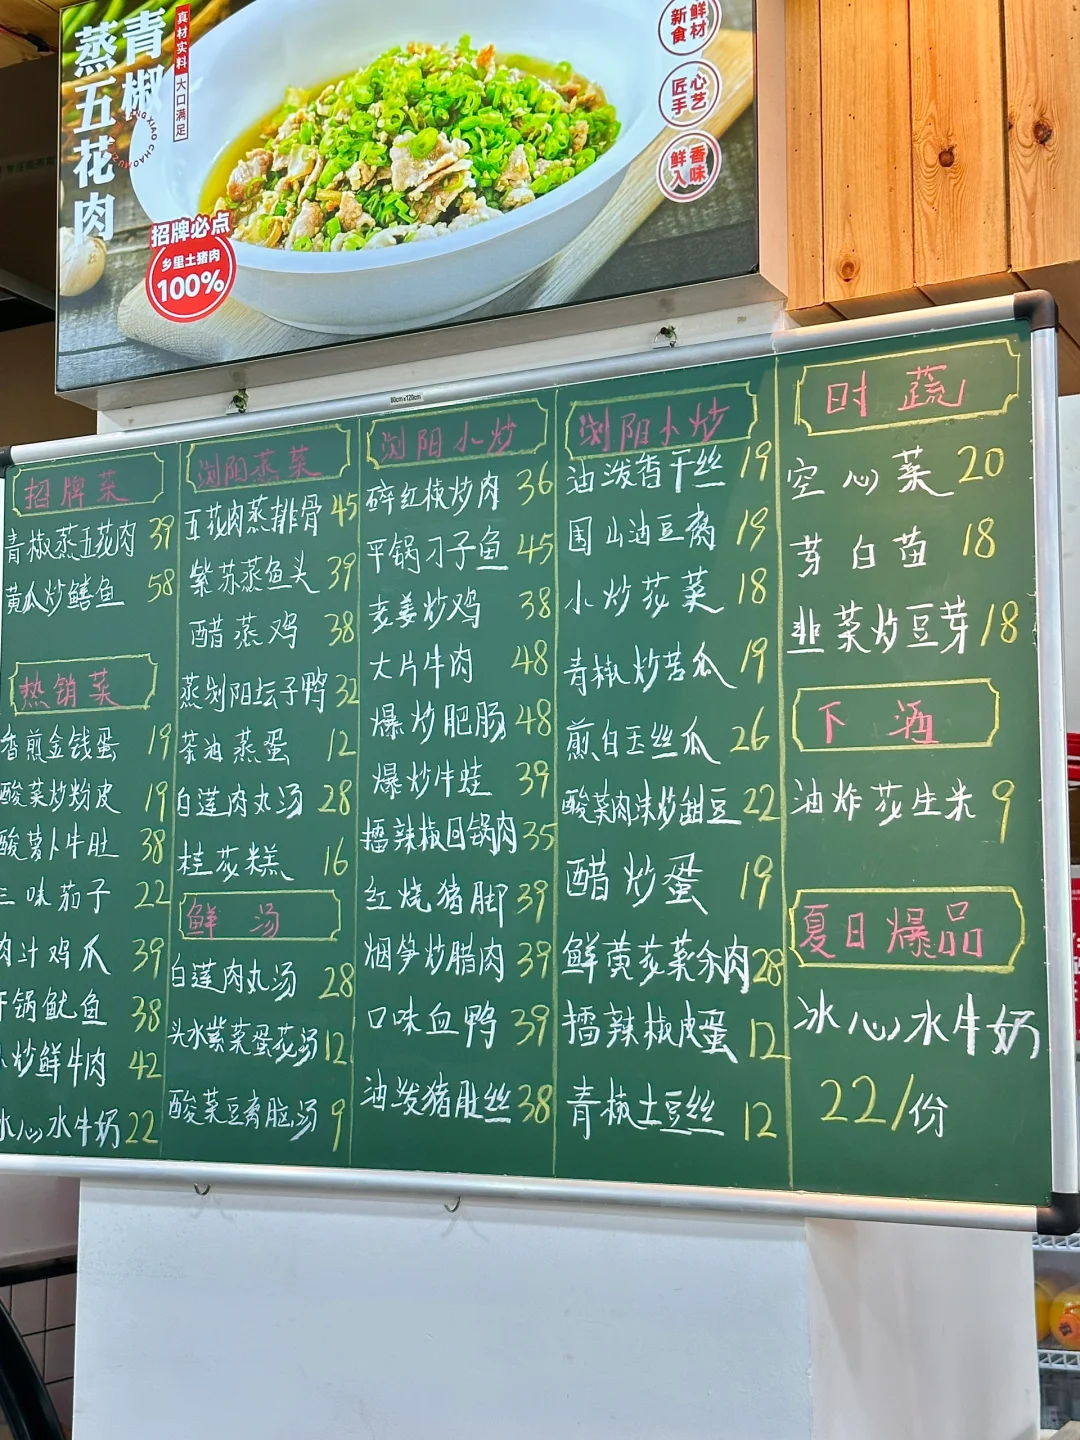 青椒
蒸五花肉
真材实料
大口满足
新鲜
食材
匠心
手艺
鲜香
入味
招牌必点
乡里土猪肉
100%
80cm x120cm
招牌菜
青椒蒸五花肉 39
黄瓜炒鳝鱼 58
热销菜
香煎金钱蛋 19
酸菜炒粉皮 19
酸萝卜牛肚 38
三味茄子 22
肉汁鸡爪 39
干锅鱿鱼 38
小炒鲜牛肉 42
冰心水牛奶 22
浏阳蒸菜
五花肉蒸排骨 45
紫苏蒸鱼头 39
醋蒸鸡 38
蒸浏阳坛子鸭 32
茶油蒸蛋 12
白莲肉丸汤 28
桂花糕 16
鲜汤
白莲肉丸汤 28
头水紫菜蛋花汤 12
酸菜豆腐脑汤 9
浏阳小炒
碎红椒炒肉 36
平锅刁子鱼 45
老姜炒鸡 38
大片牛肉 48
爆炒肥肠 48
爆炒牛蛙 39
擂辣椒回锅肉 35
红烧猪脚 39
烟笋炒腊肉 39
口味血鸭 39
油泼猪肚丝 38
浏阳小炒
油泼香干丝 19
围山油豆腐 19
小炒花菜 18
青椒炒苦瓜 19
煎白玉丝瓜 26
酸菜肉沫炒甜豆 22
醋炒蛋 19
鲜黄花菜汆肉 28
擂辣椒皮蛋 12
青椒土豆丝 12
时蔬
空心菜 20
芽白苗 18
韭菜炒豆芽 18
下酒
油炸花生米 9
夏日爆品
冰心水牛奶
22/份